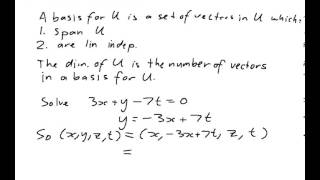 A basis for U is a set of vectors in U which:
1. span U
2. are lin indep.
The dim. of U is the number of vectors
in a basis for U.
Solve 3x+y-7t=0
y=-3x+7t
So (x,y,z,t)=(x,-3x+7t, z, t)
=